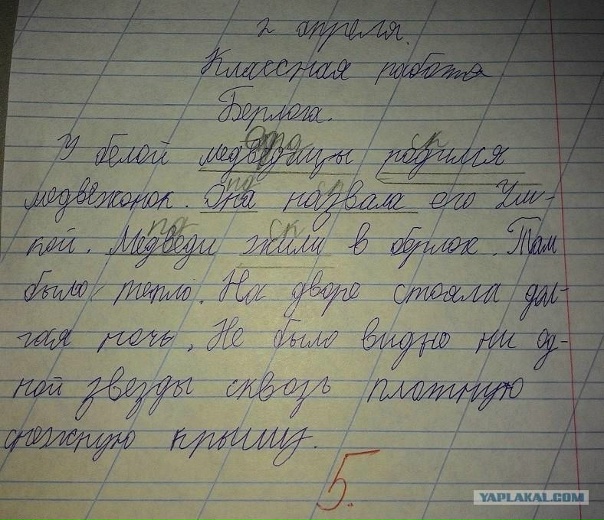 2 апреля.
Классная работа
Берлога.
У белой медведицы родился
медвежонок. Она назвала его Ум-
кой. Медведи жили в берлок. Там
было тепло. На дворе стояла дол-
гая ночь. Не было видно ни од-
ной звезды сквозь плотную
снежную крышу.
5.
YAPLAKAL.COM